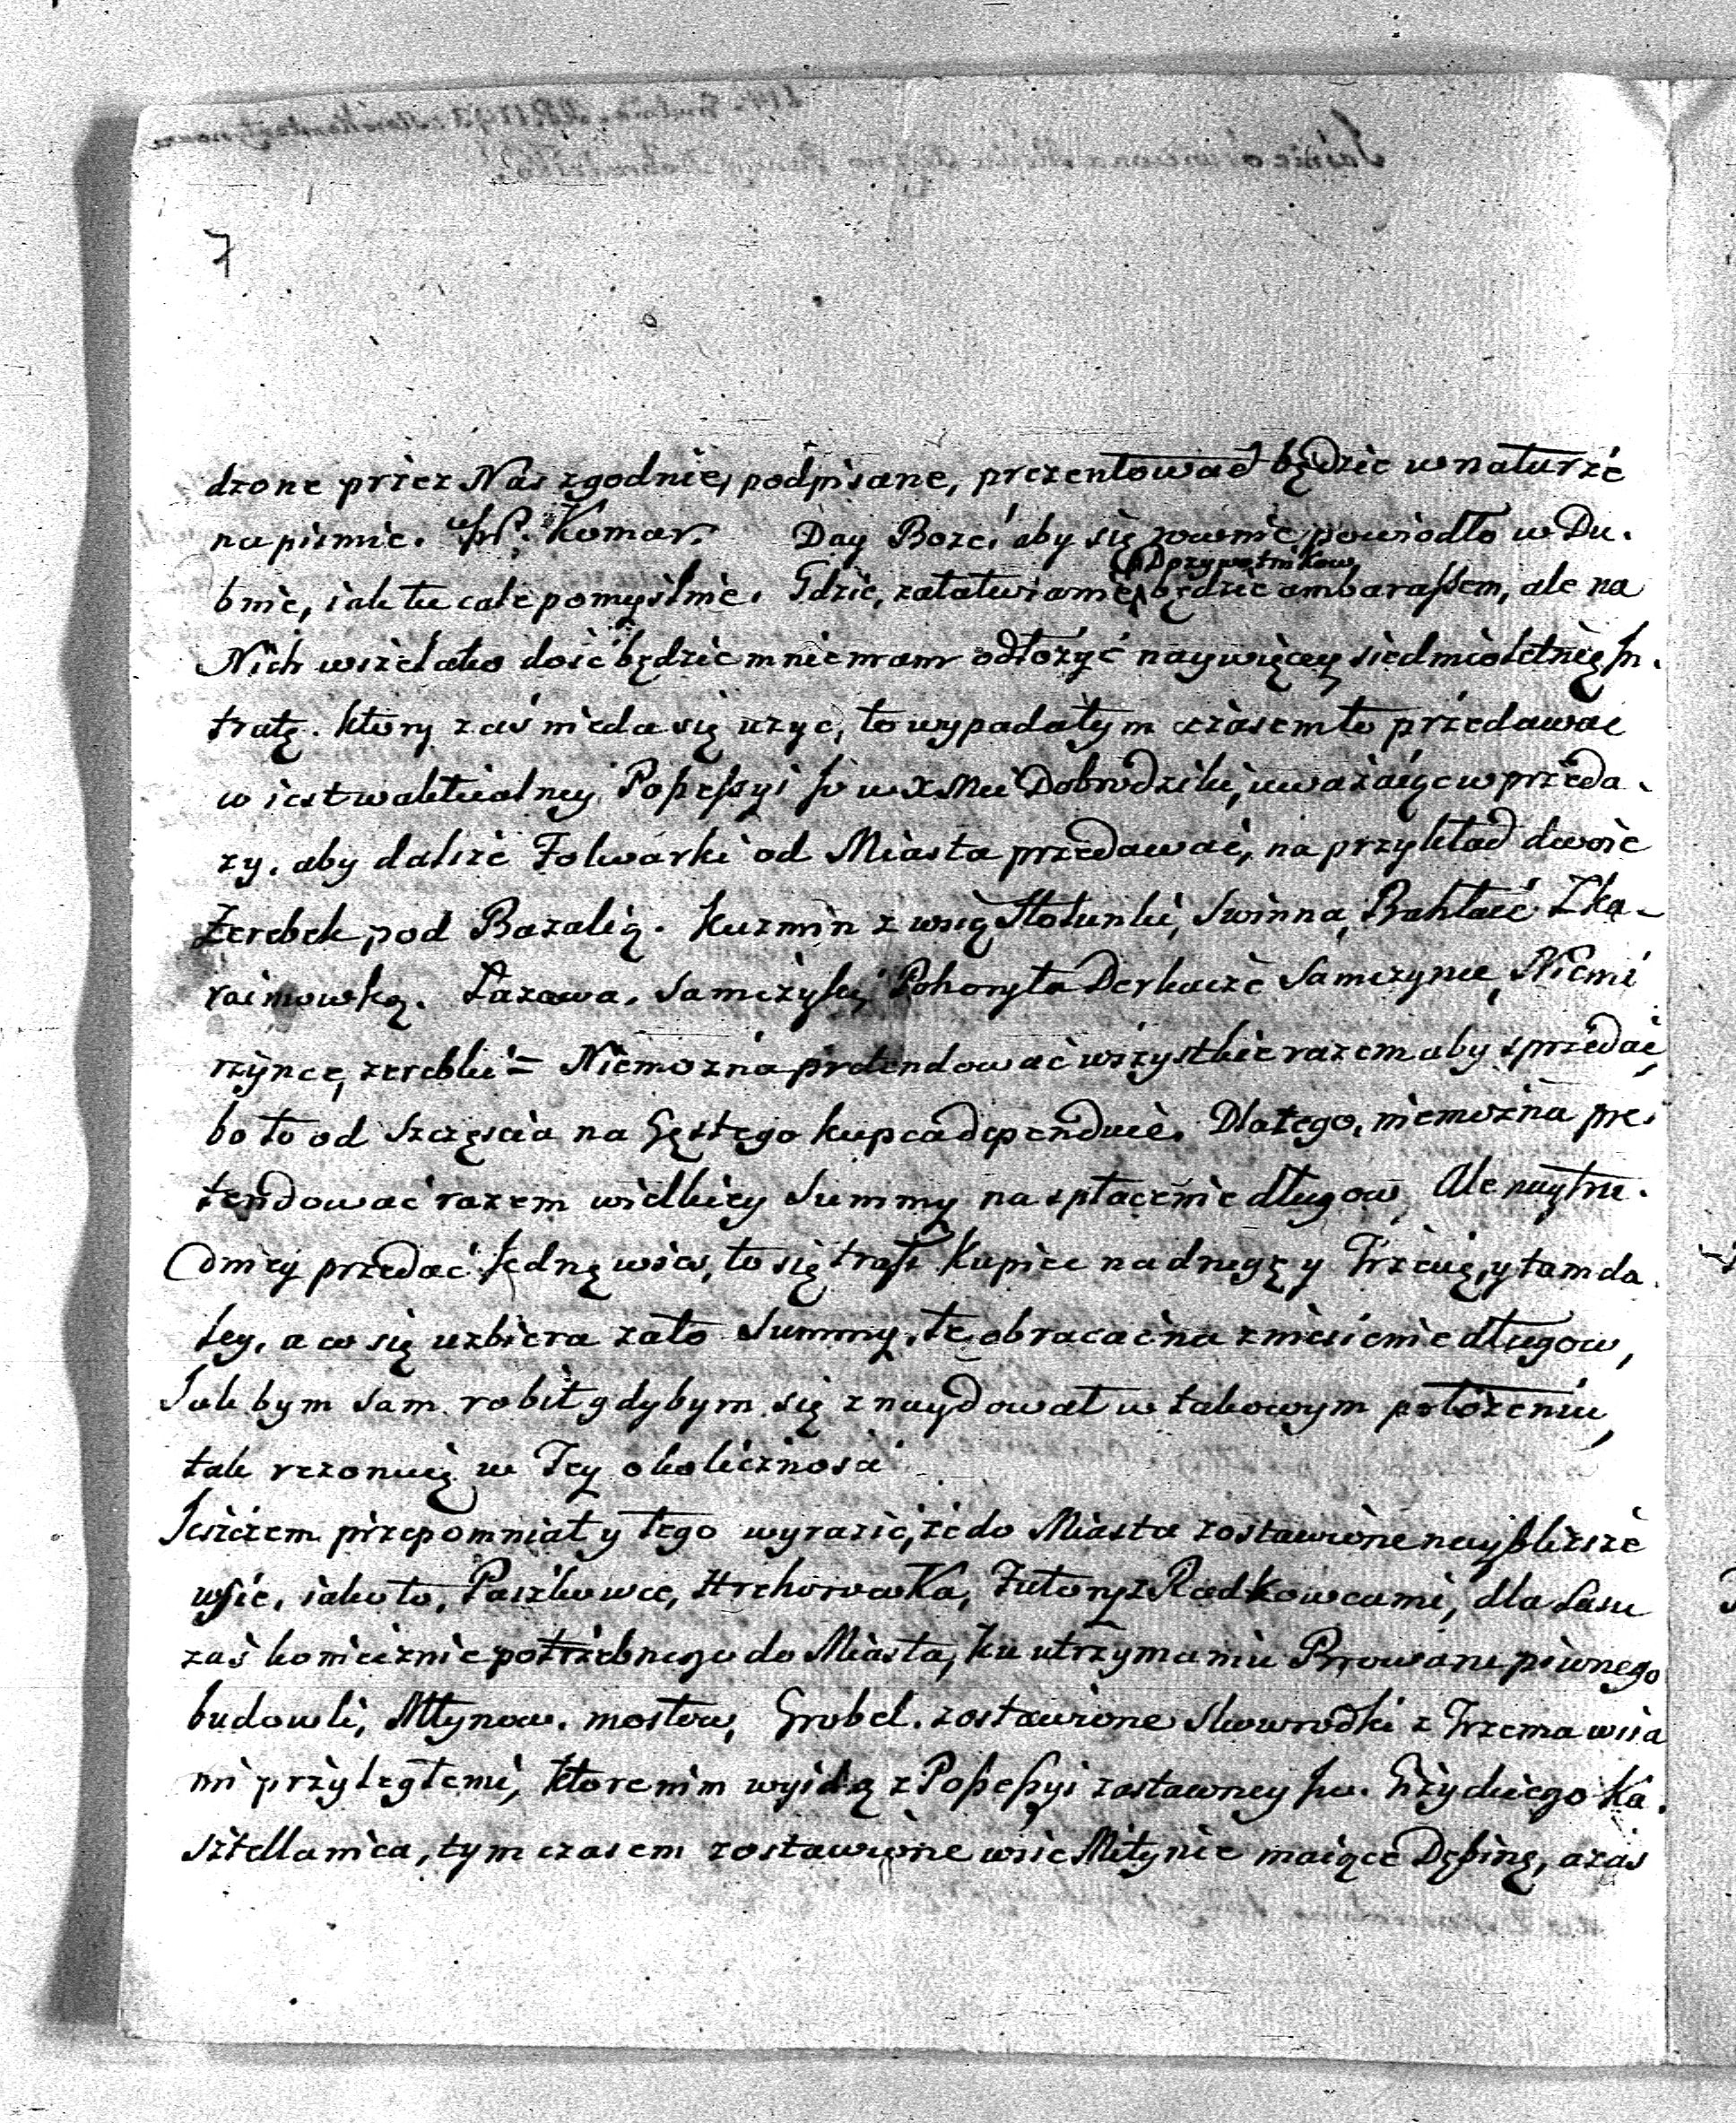 7
dzone przez Nas zgodnie, podpisane, prezentować będzie w naturze
na pismie. JP. Komar. Day Boze, aby się rownie powiodło w Du.
Dozywotnikow
bnie, iak tu całe pomyslnie. Gdzie, załatwianie, będzie ambarassem, ale na
Nich wszelako dość będzie mniemam odłozyć naywięcey siedmioletnię In.
tratę. ktory zaś nieda się uzyc, to wypadałym czasem to przedawac
w iest w aktualney Possessyi JO WXMci Dobrodziki, uwazaiąc w przeda.
zy. aby dalsze Folwarki od Miasta przedawać, na przykład dwoie
Zerebek pod Bazalią. Kuzmin z wsią Słotunki, Swinna, Rahłaie Zka-
raimowką. Łazowa. Samczyki Pohoryła Derkacze Samczynce, Niemi
rzynce, zerebki = Niemozna pretendować wszystkie razem aby sprzedać,
bo to od Szczęscia na Gęstego kupca dependuie. Dlatego, niemozna pre.
tendować razem wielkiey Summy na spłacenie długow, Ale naytru.
dniey przedać Jednę wies, to się trafi Kupiec na drugę y Trzecię, y tam da.
ley, a co się uzbiera zato Summy, te obracać na zniesienie długow,
Jak bym Sam robił gdybym się znaydował w takowym połozeniu,
tak rezonuię w Tey okolicznosci
Jeszczem przepomniał y tego wyrazić, ze do Miasta zostawione nayblizsze
wsie, iako to, Paszkowce, Hrehorowka, Futory z Radkowcami, dla Lasu
zaś koniecznie potrzebnego do Miasta, ku utrzymaniu Browaru piwnego
budowli, Młynow. mostow, Grobel. zostawione Skowrodki z Trzema wsia
mi przyległemi, ktore nim wyidą z Possessyi zastawney Jw. Gizyckiego Ka.
sztellanica, tym czasem zostawione wsie Mitynie maiące Dębinę, a zas